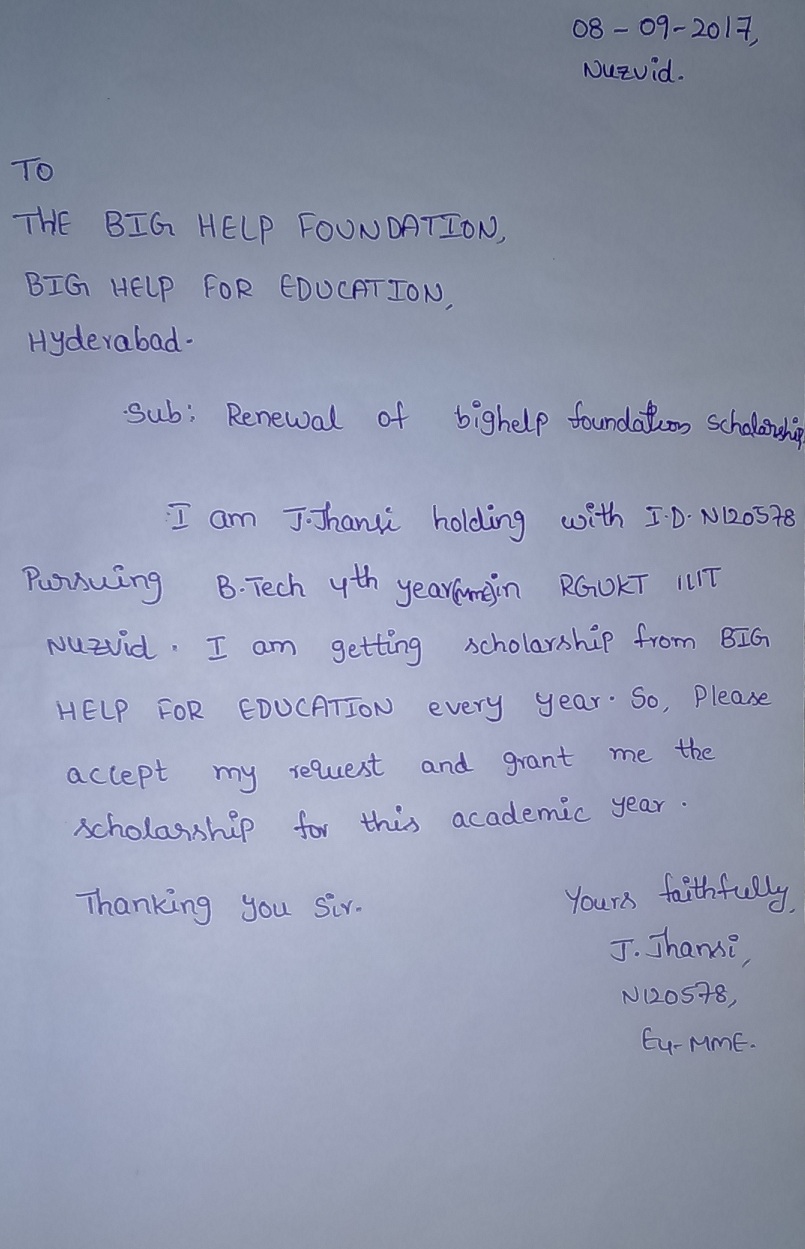 08-09-2017,
Nuzvid.
TO
THE BIG HELP FOUNDATION,
BIG HELP FOR EDUCATION,
Hyderabad.
Sub: Renewal of bighelp foundation scholarship.
I am J.Jhansi holding with I.D. N120578
Pursuing B.Tech 4th year(mme)in RGUKT IIIT
Nuzvid. I am getting scholarship from BIG
HELP FOR EDUCATION every year. So, Please
accept my request and grant me the
scholarship for this academic year.
Thanking you Sir.
Yours faithfully,
J. Jhansi,
N120578,
E4-MME.